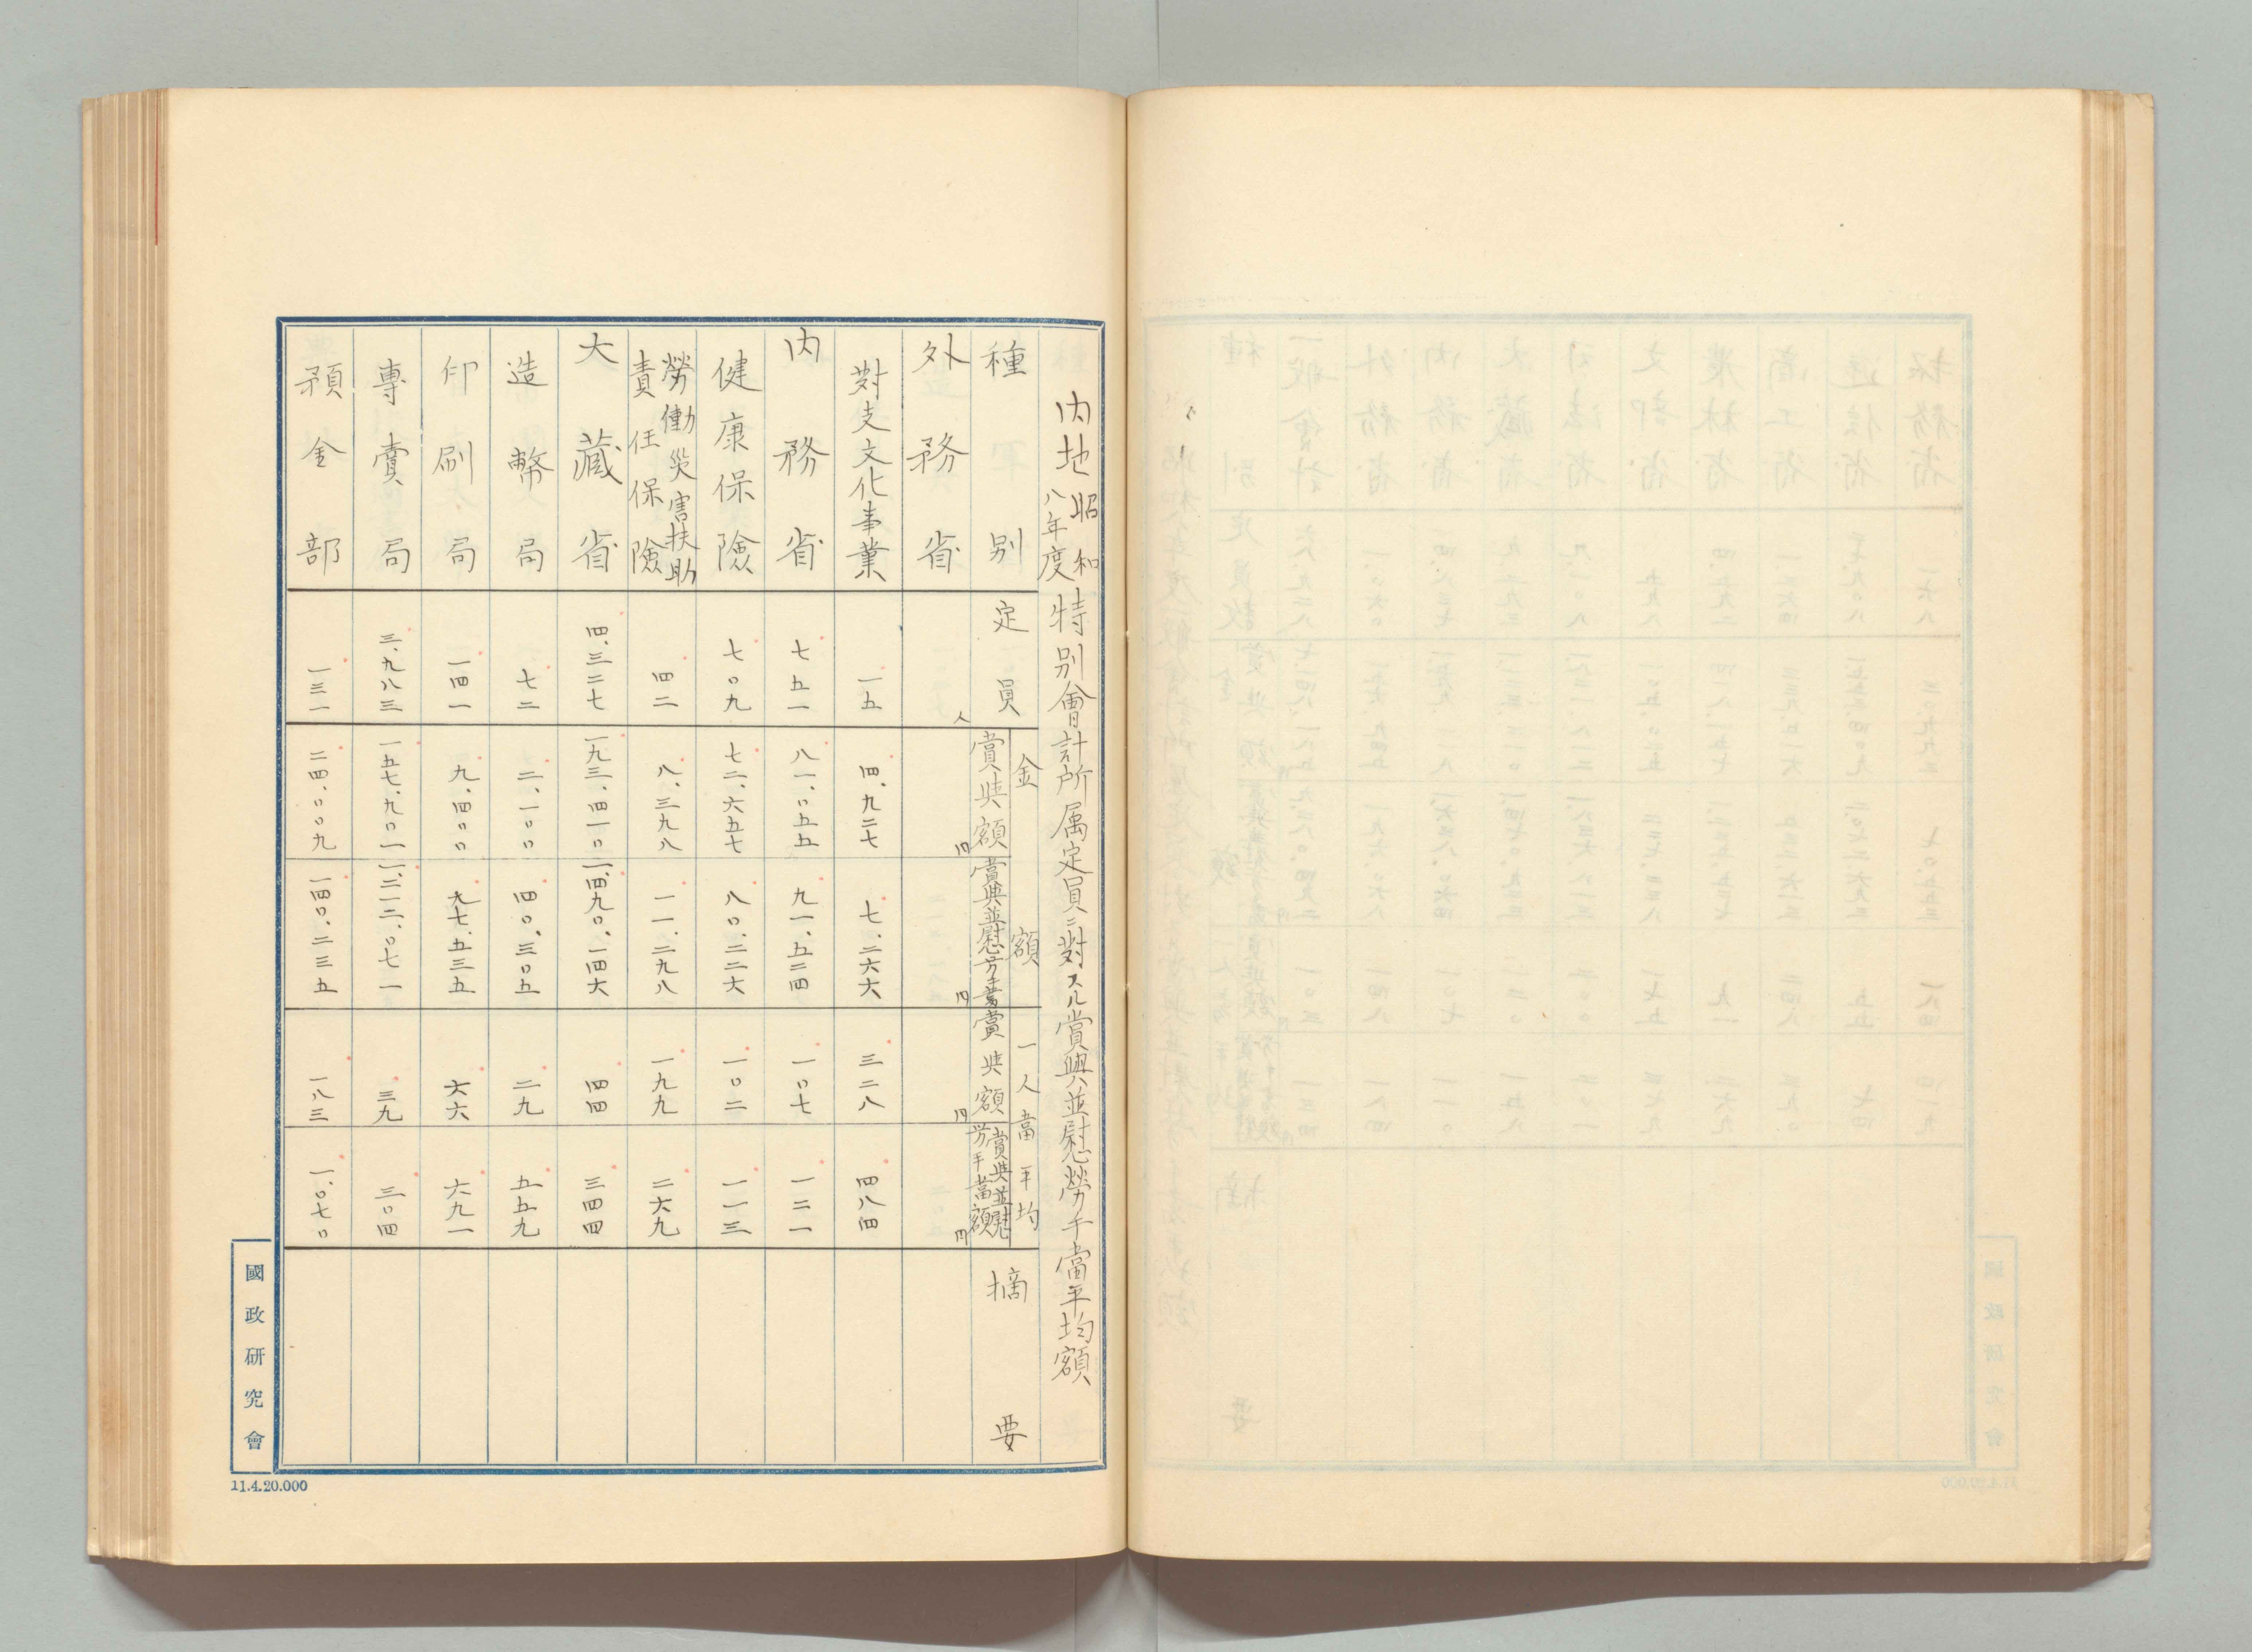 内地昭和八年度特別會計所属定員ニ對スル賞與並慰勞手當平均額
種別 定員 金額 一人當平均 摘要
賞與額 賞與並慰労手當 賞與額 賞與並慰労手當額
人 円 円 円 円
外務省
對支文化事業 一五 四.九二七 七.二六六 三二八 四八四
内務省 七五一 八一.〇五五 九一.五二四 一〇七 一二一
健康保險 七〇九 七二.六五七 八〇.二二六 一〇二 一一三
勞働災害扶助責任保險 四二 八.三九八 一一.二九八 一九九 二六九
大藏省 四.三二七 一九三.四一〇 一.四九〇.一四六 四四 三四四
造幣局 七二 二.一〇〇 四〇.三〇五 二九 五五九
印刷局 一四一 九.四〇〇 九七.五三五 六六 六九一
專賣局 三.九八三 一五七.九〇一 一.二一二.〇七一 三九 三〇四
預金部 一三一 二四.〇〇九 一四〇.二三五 一八三 一.〇七〇
國政研究會
11.4.20.000